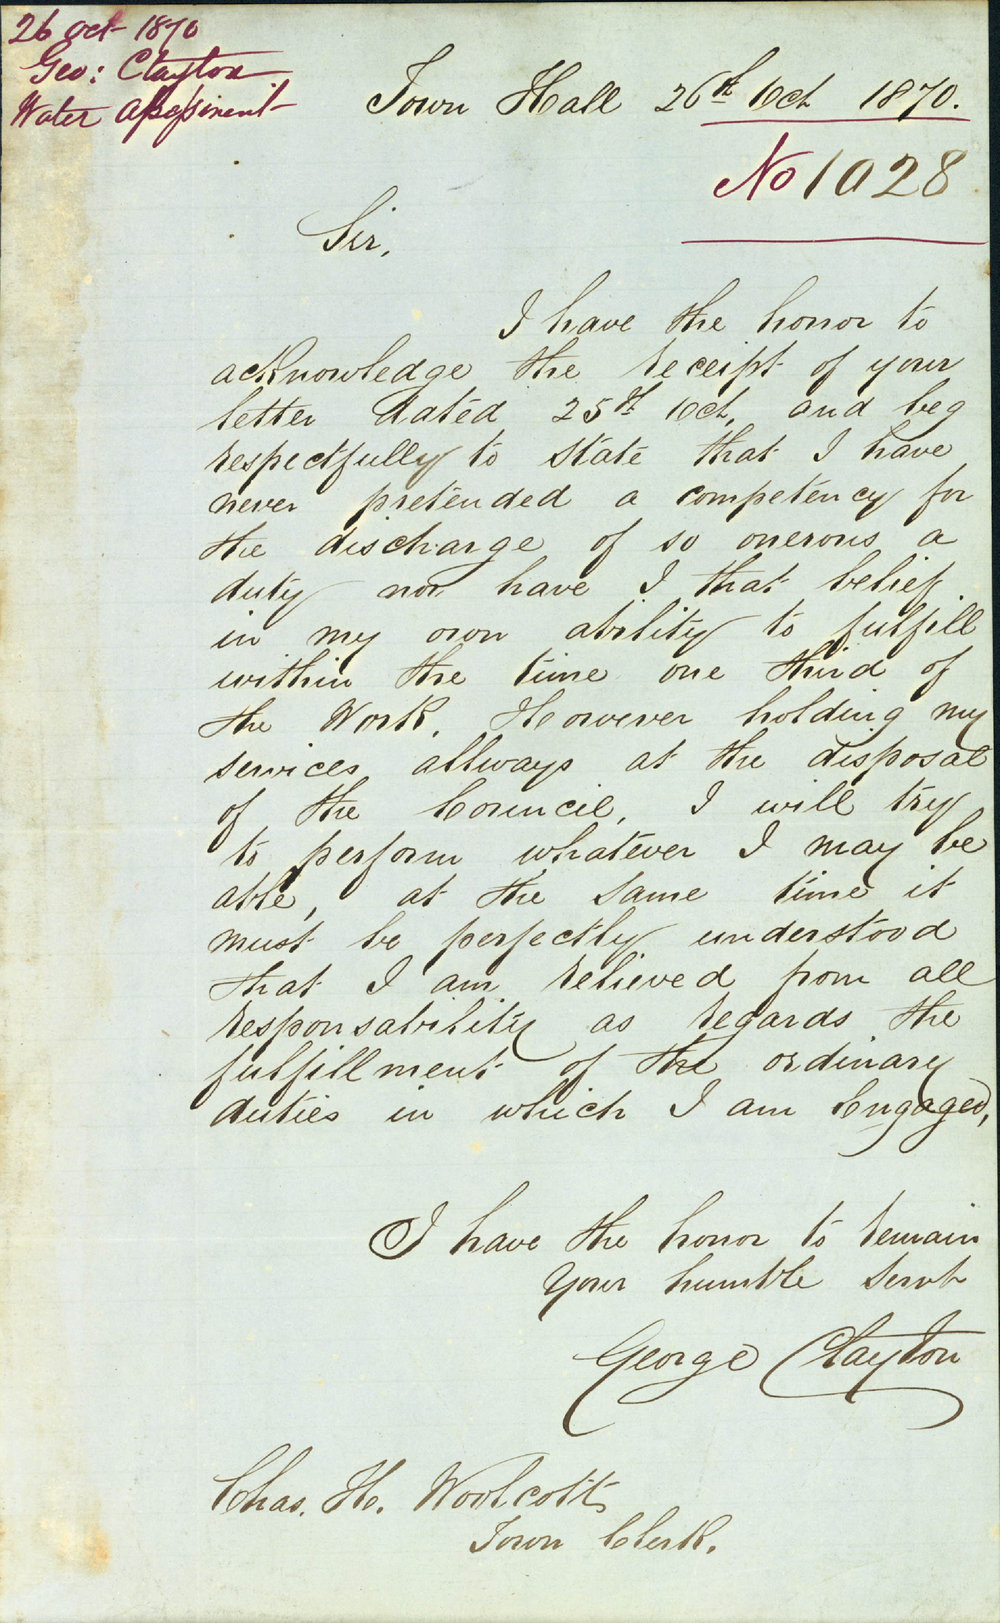 26 Oct 1870
Geo: Clayton
Water Assessment
Town Hall 26th Oct 1870.
No 1028
Sir,
I have the honor to
acknowledge the receipt of your
letter dated 25th Oct, and beg
respectfully to state that I have
never pretended a competency for
the discharge of so onerous a
duty nor have I that belief
in my own ability to fulfill
within the time one third of
the Work. However holding my
services allways at the disposal
of the Council, I will try
to perform whatever I may be
able, at the same time it
must be perfectly understood
that I am relieved from all
responsability as regards the
fulfillment of the ordinary
duties in which I am Engaged,
I have the honor to remain
Your humble Servt
George Clayton
Chas. H. Woolcott
Town Clerk.